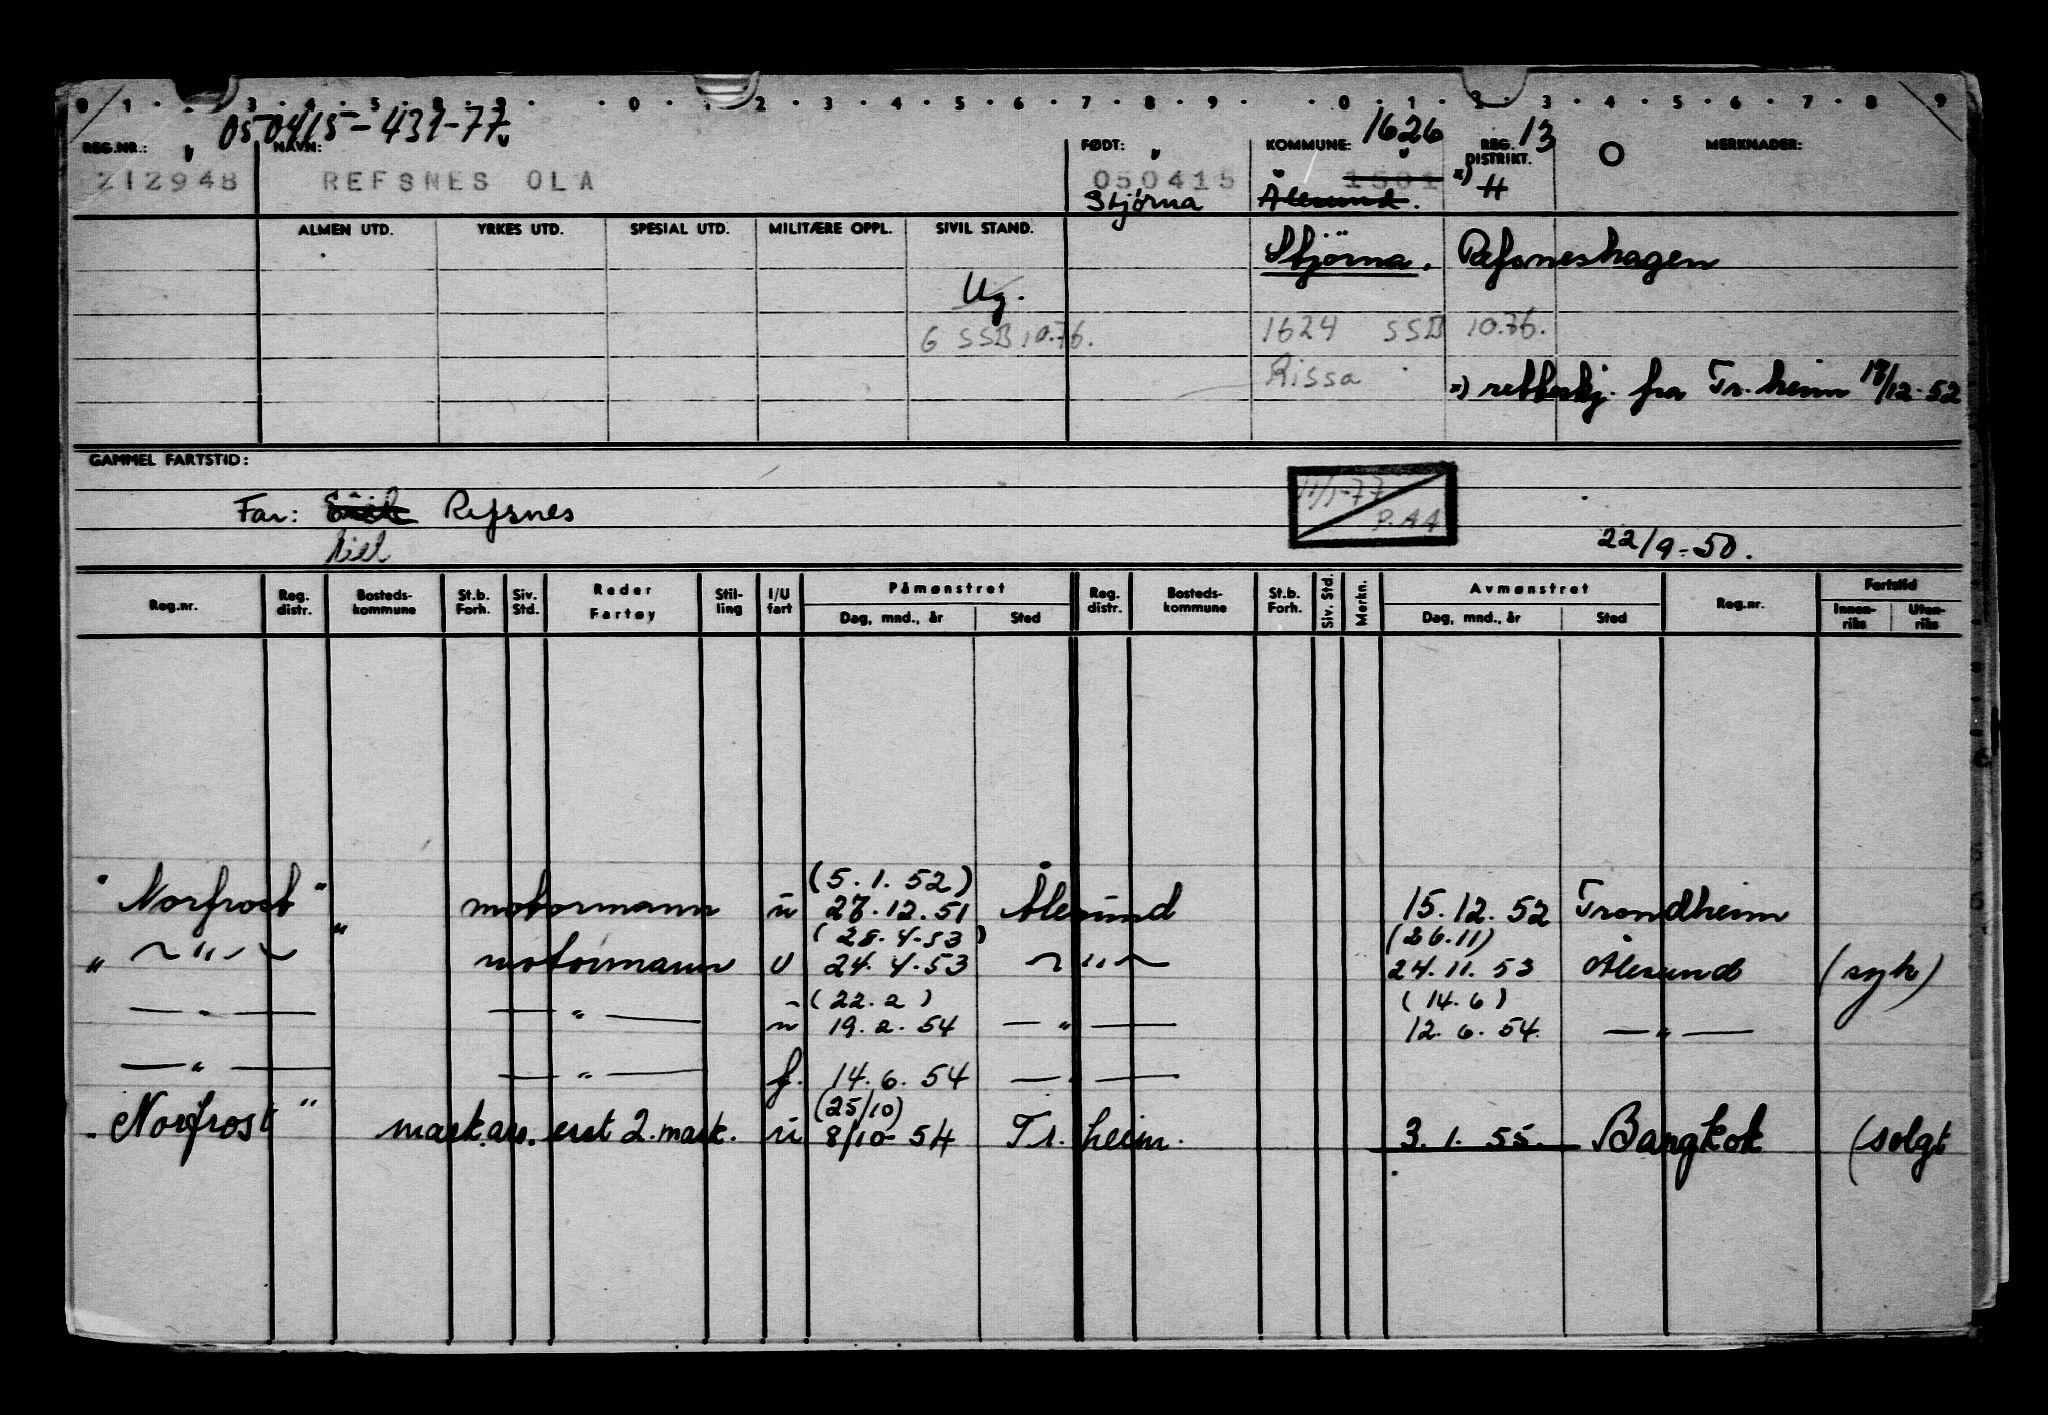 0 1 . . 3 . 4 . 5 . 8 . 9 . . 0 . 1 2 . 3 . 4 . 5 . 6 . 7 . 8 . 9 . . 0 . 1 . 2 . 3 . 4 . 5 . 6 . 7 . 8 . 9
050415-439-77
REG.NR.: NAVN: FØDT: KOMMUNE: 1626 REG. DISTRIKT. 13 O MERKNADER:
212948 REFSNES OLA 050415 1501 x) H
Stjørna Ålesund.
ALMEN UTD. YRKES UTD. SPESIAL UTD. MILITÆRE OPPL. SIVIL STAND.
Stjörna, Refsneshagen
Ug.
G SSB 10.76. 1624 SSB 10.76.
Rissa
x) rettskj. fra Tr.heim 17/12-52
GAMMEL FARTSTID:
11/1-77
P.A4
Far: Refsnes
22/9-50.
Reg.nr. Reg. distr. Bosteds-kommune St.b. Forh. Siv. Std. Reder Fartøy Stil-ling I/U fart Påmønstret Dag, mnd., år Sted Reg. distr. Bosteds-kommune St.b. Forh. Siv. Std. Merkn. Avmønstret Dag, mnd., år Sted Reg.nr. Fartstid Innen-riks Uten-riks
(5.1.52)
"Norfrost" motormann u 27.12.51 Ålesund 15.12.52 Trondheim
(28.4.53) (26.11)
" — " — " motormann U 24.4.53 — " — 24.11.53 Ålesund (syk)
(22.2) (14.6)
— " — — " — u 19.2.54 — " — 12.6.54 — " —
— " — — " — f. 14.6.54 — " —
(25/10)
"Norfrost" mask.ass. erst 2. mask. u 8/10-54 Tr.heim. 3.1.55. Bangkok (solgt